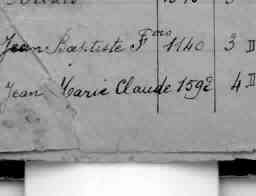 Jean Baptiste Fcois 1140 3 D
Jean Marie Claude 1592 4 D